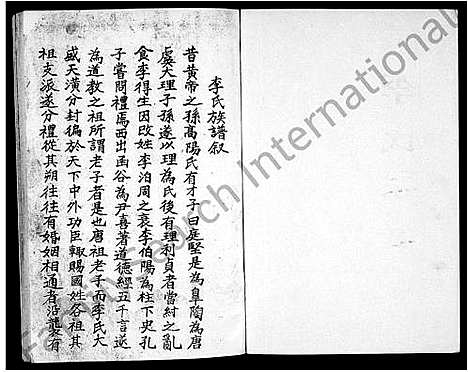 李氏族譜叙
昔黄帝之孫高陽氏有才子曰庭堅是為皐陶為唐
虞大理子孫遂以理為氏後有理利貞者當紂之亂
食李得生因改姓李洎周之衰李伯陽為柱下史孔
子嘗問禮焉西出函谷為尹喜著道德經五千言遂
為道教之祖所謂老子者是也唐祖老子而李氏大
盛天潢分封徧於天下中外功臣輙賜國姓各祖其
祖支派遂分禮從其朔往往有婚姻相通者沿襲
Search International